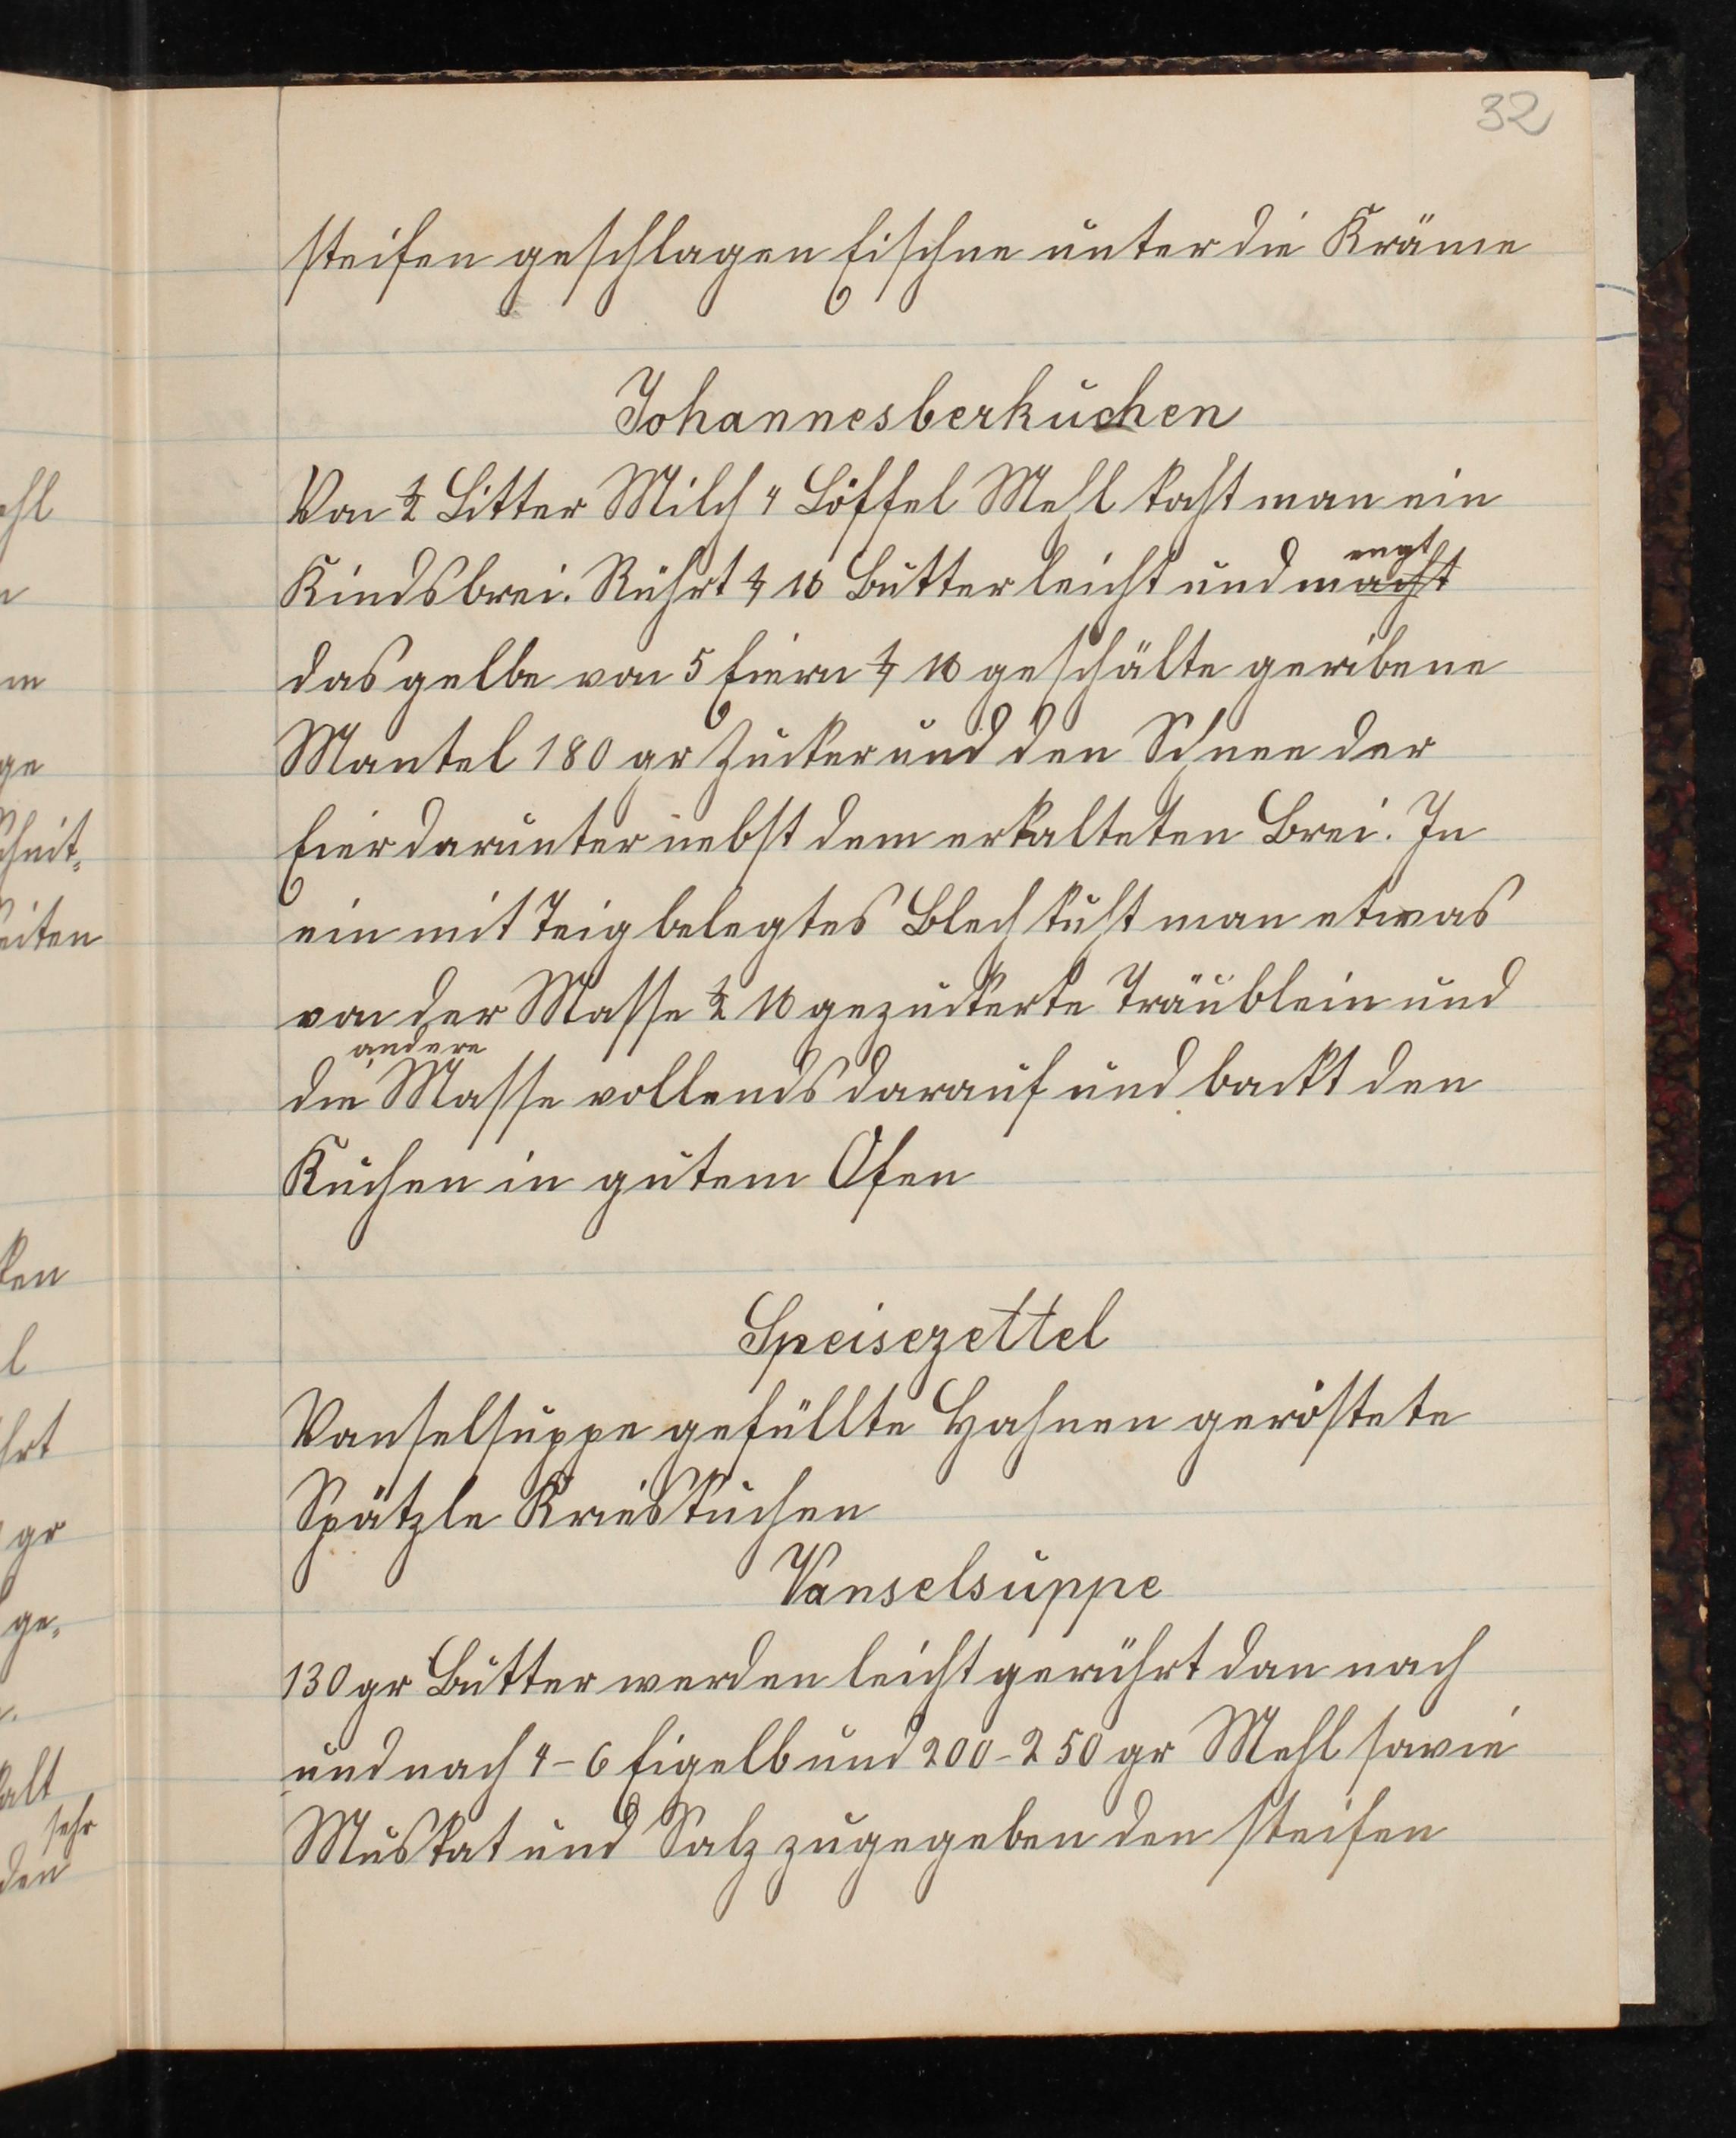 32
steifen geschlagen Eischne unter die Kräme
Johannesberkuchen
Von ½ Litter Milch 4 Löffel Mehl kocht man ein
Kindsbrei. Rührt ¼ ℔ Butter leicht und macht
engt
das gelbe von 5 Eiern ¼ ℔ geschälte geribene
Mantel 180 gr Zucker und den Schnee der
Eier darunter nebst dem erkalteten Brei. In
ein mit Teig belegtes Blech tuht man etwas
von der Masse ½ ℔ gezuckerte Träublein und
andere
die Masse vollends darauf und backt den
Kuchen in gutem Ofen
Speisezettel
Vanselsuppe gefüllte Hahnen geröstete
Spätzle Krieskuchen
Vanselsuppe
130 gr Butter werden leicht gerührt dan nach
und nach 4-6 Eigelb und 200-250 gr Mehl sowie
Muskat und Salz zugegeben den steifen